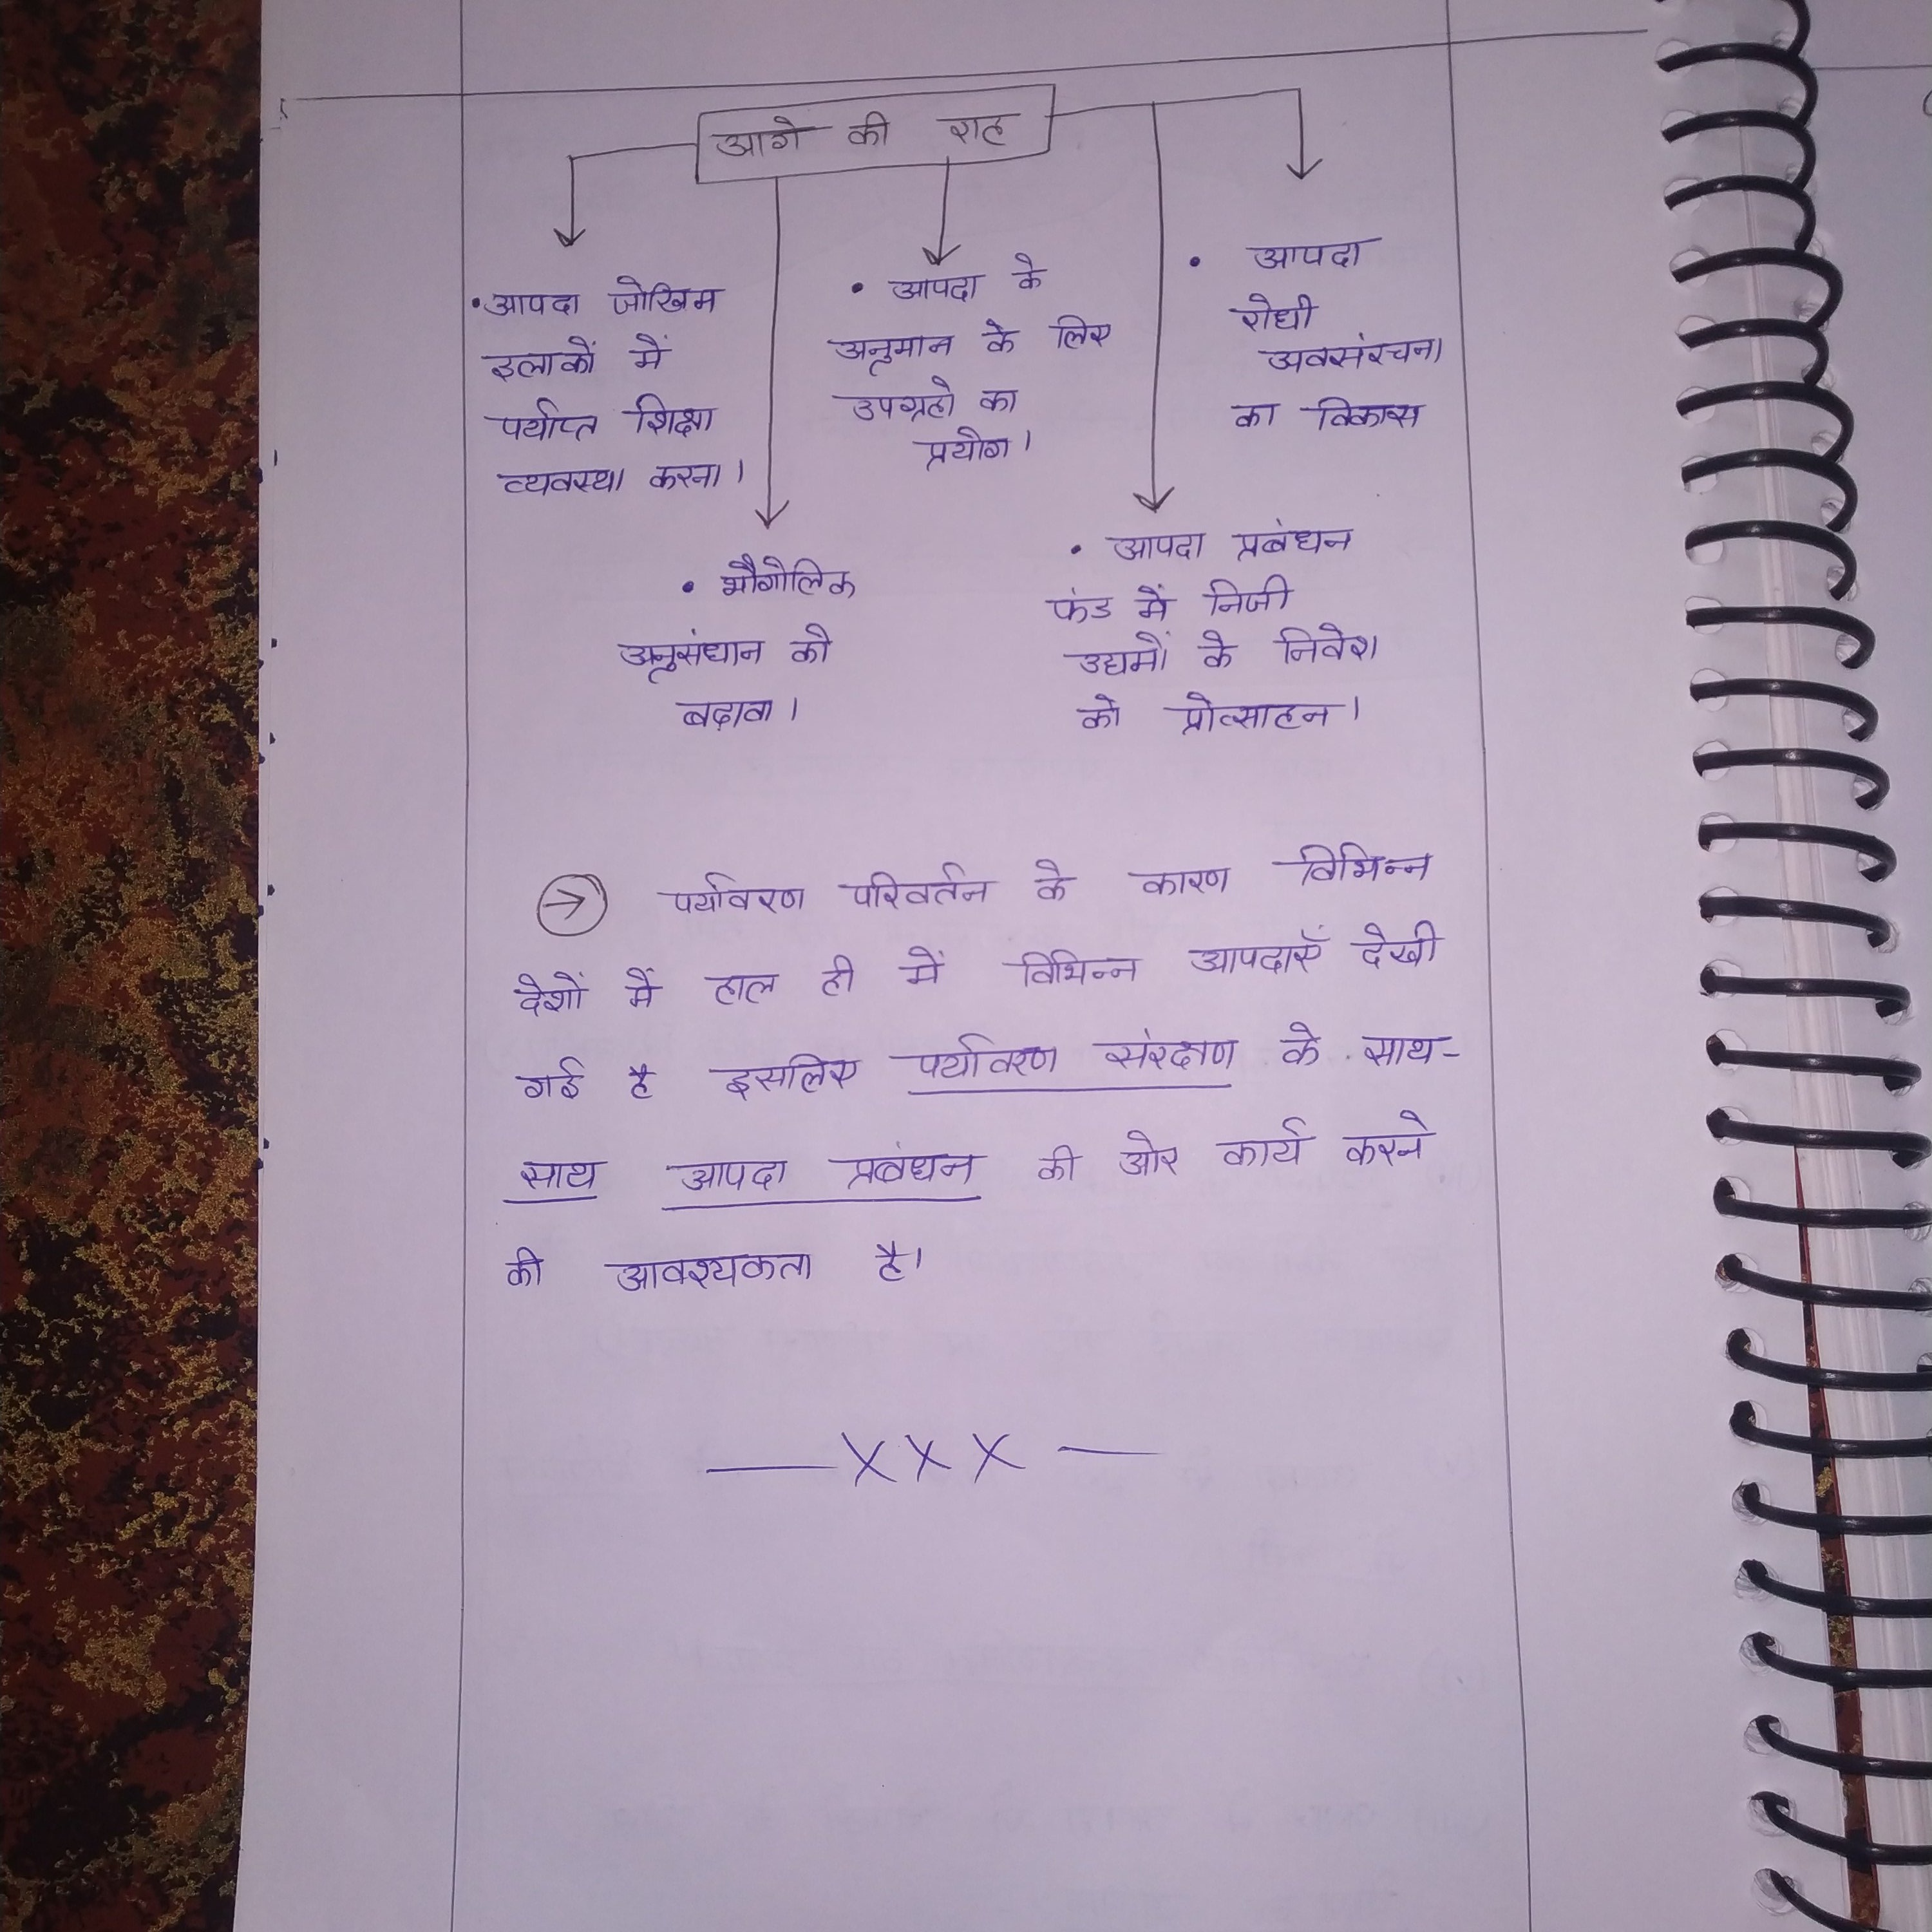 आगे की राह
• आपदा जोखिम
इलाकों में
पर्याप्त शिक्षा
व्यवस्था करना।
• भौगोलिक
अनुसंधान को
बढ़ावा।
• आपदा के
अनुमान के लिए
उपग्रहो का
प्रयोग।
• आपदा प्रबंधन
फंड में निजी
उद्यमों के निवेश
को प्रोत्साहन।
• आपदा
रोधी
अवसंरचना
का विकास
→ पर्यावरण परिवर्तन के कारण विभिन्न
देशों में हाल ही में विभिन्न आपदाएँ देखी
गई है इसलिए पर्यावरण संरक्षण के साथ-
साथ आपदा प्रबंधन की ओर कार्य करने
की आवश्यकता है।
— X X X —